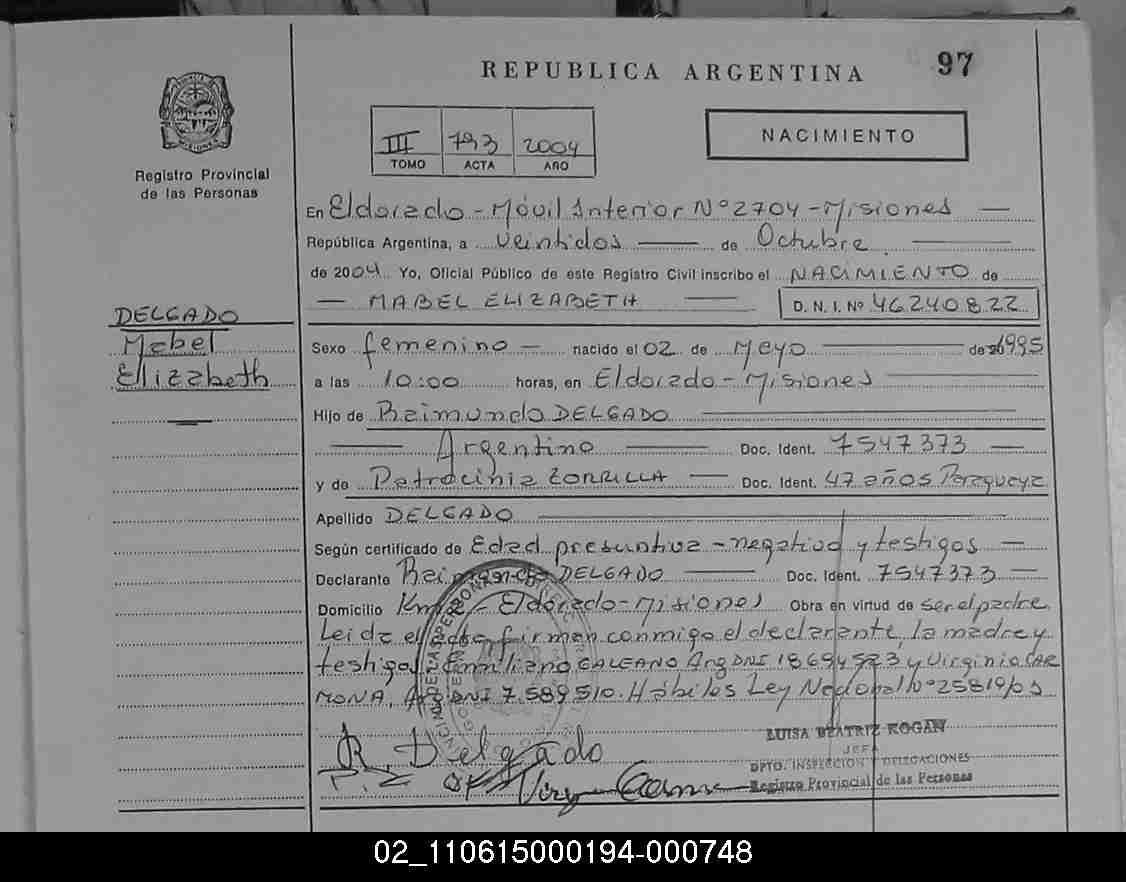 97
REPUBLICA ARGENTINA
III 793 2004
TOMO ACTA AÑO
NACIMIENTO
Registro Provincial
de las Personas
En Eldorado - Móvil Interior Nº 2704 - Misiones —
República Argentina, a veintidos — de Octubre —
de 2004 Yo, Oficial Público de este Registro Civil inscribo el NACIMIENTO de
— MABEL ELIZABETH — D. N. I. Nº 46240822
DELGADO
Mabel
Elizabeth
Sexo femenino — nacido el 02 de Mayo — de 1995
a las 10:00 horas, en Eldorado - Misiones —
Hijo de Raimundo DELGADO —
— Argentino — Doc. Ident. 7547373 —
y de Patrocinia ZORRILLA — Doc. Ident. 47 años Paraguaya
Apellido DELGADO —
Según certificado de Edad presuntiva - negativa y testigos —
Declarante Raimundo DELGADO — Doc. Ident. 7547373 —
Domicilio Eldorado - Misiones Obra en virtud de ser el padre.
Leida el acta firman conmigo el declarante, la madre y
testigos Emiliano GALEANO Arg DNI y Virginia CAR
MONA, Arg DNI 7.589.510. Hábiles Ley Nacional Nº 25819/03
R. Delgado
P. Z
LUISA BEATRIZ KOGAN
JEFA
DPTO. INSPECCION Y DELEGACIONES
Registro Provincial de las Personas
02_110615000194-000748